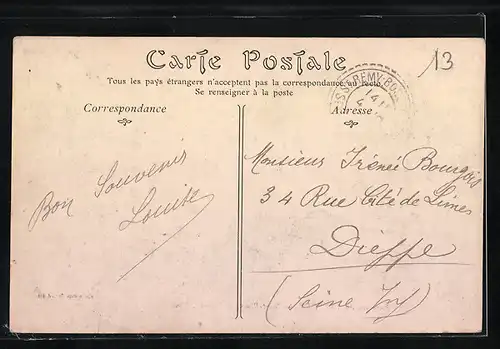 Carte Postale
Tous les pays étrangers n'acceptent pas la correspondance au recto.
Se renseigner à la poste
13
Correspondance
Adresse
Bon Souvenir
Louise
Monsieur Irénée Bourgois
34 Rue Cité de Limes
Dieppe
(Seine Inf)